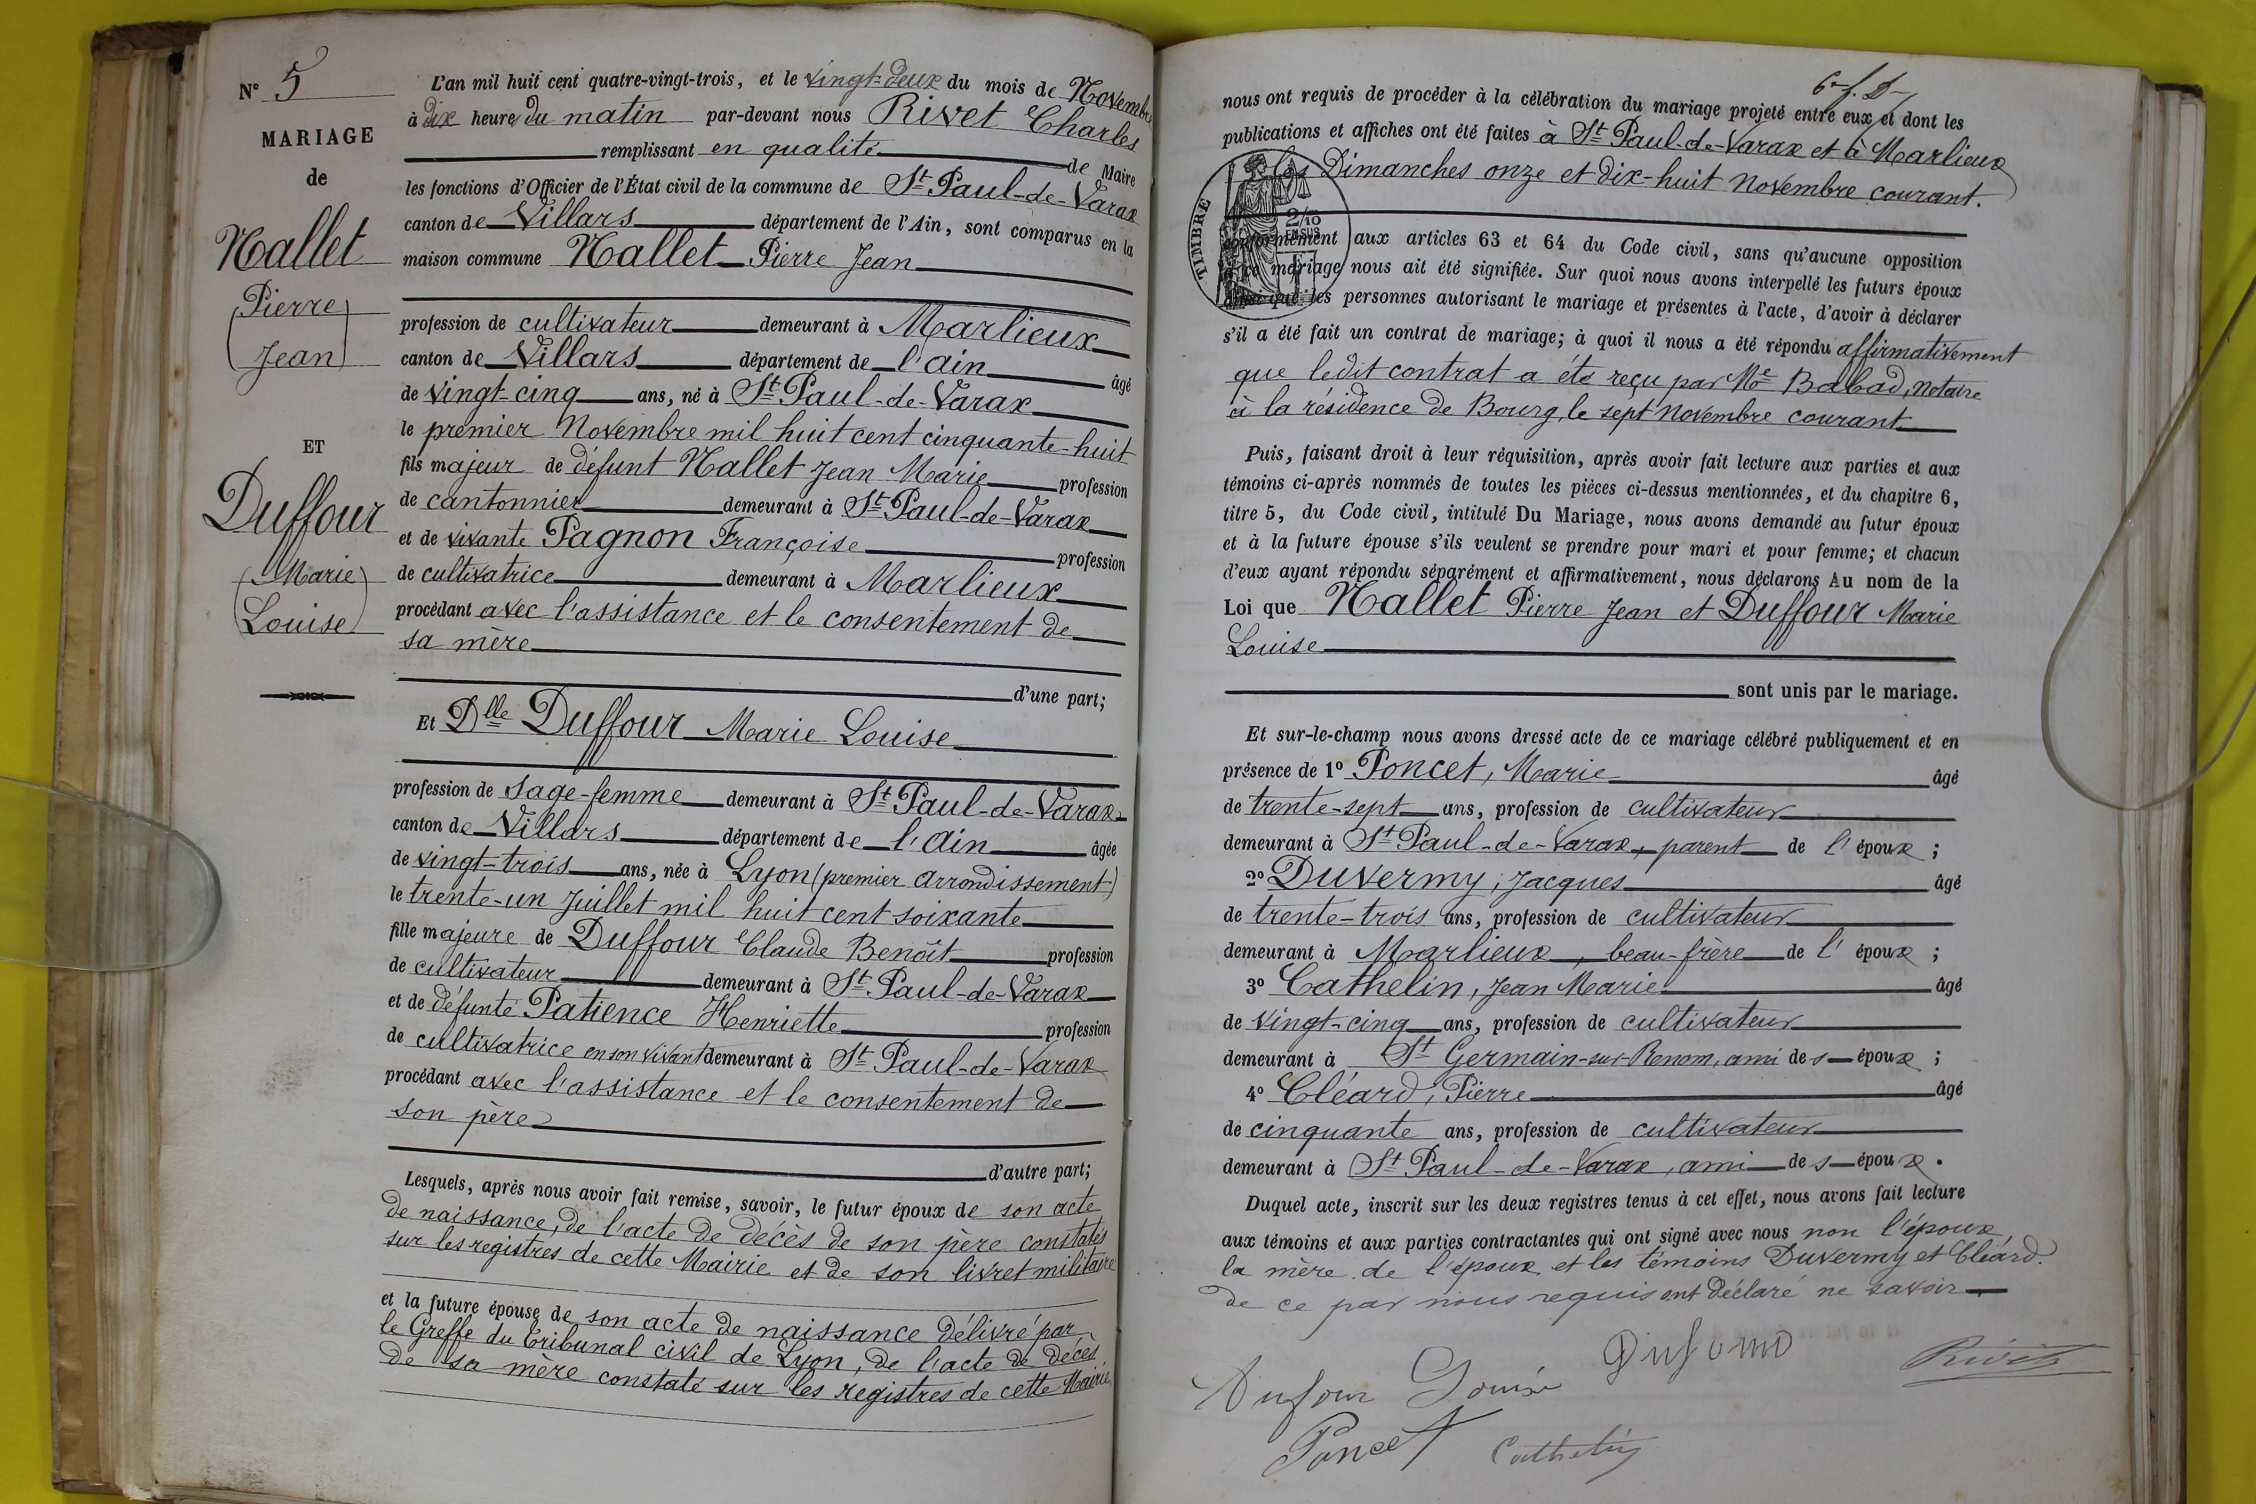 N° 5
MARIAGE
de
Nallet
(Pierre
Jean)
ET
Duffour
(Marie
Louise)
L'an mil huit cent quatre-vingt-trois, et le vingt-deux du mois de Novembre
à dix heure du matin par-devant nous Rivet Charles
remplissant en qualité de Maire
les fonctions d'Officier de l'État civil de la commune de St Paul-de-Varax
canton de Villars département de l'Ain, sont comparus en la
maison commune Nallet Pierre Jean
profession de cultivateur demeurant à Marlieux
canton de Villars département de l'Ain âgé
de vingt-cinq ans, né à St Paul-de-Varax
le premier Novembre mil huit cent cinquante-huit
fils majeur de défunt Nallet Jean Marie profession
de cantonnier demeurant à St Paul-de-Varax
et de vivante Pagnon Françoise profession
de cultivatrice demeurant à Marlieux
procédant avec l'assistance et le consentement de
sa mère
d'une part;
Et Dlle Duffour Marie Louise
profession de sage-femme demeurant à St Paul-de-Varax
canton de Villars département de l'Ain âgée
de vingt-trois ans, née à Lyon (premier arrondissement)
le trente-un Juillet mil huit cent soixante
fille majeure de Duffour Claude Benoît profession
de cultivateur demeurant à St Paul-de-Varax
et de défunte Patience Henriette profession
de cultivatrice en son vivant demeurant à St Paul-de-Varax
procédant avec l'assistance et le consentement de
son père
d'autre part;
Lesquels, après nous avoir fait remise, savoir, le futur époux de son acte
de naissance, de l'acte de décès de son père constatés
sur les registres de cette Mairie et de son livret militaire
et la future épouse de son acte de naissance délivré par
le Greffe du Tribunal civil de Lyon, de l'acte de décès
de sa mère constaté sur les registres de cette Mairie
nous ont requis de procéder à la célébration du mariage projeté entre eux et dont les
publications et affiches ont été faites à St Paul-de-Varax et à Marlieux
les Dimanches onze et dix-huit Novembre courant.
TIMBRE
2/10
EN SUS
conformément aux articles 63 et 64 du Code civil, sans qu'aucune opposition
à ce mariage nous ait été signifiée. Sur quoi nous avons interpellé les futurs époux
ainsi que les personnes autorisant le mariage et présentes à l'acte, d'avoir à déclarer
s'il a été fait un contrat de mariage; à quoi il nous a été répondu affirmativement
que ledit contrat a été reçu par Me Babad, notaire
à la résidence de Bourg, le sept Novembre courant
Puis, faisant droit à leur réquisition, après avoir fait lecture aux parties et aux
témoins ci-après nommés de toutes les pièces ci-dessus mentionnées, et du chapitre 6,
titre 5, du Code civil, intitulé Du Mariage, nous avons demandé au futur époux
et à la future épouse s'ils veulent se prendre pour mari et pour femme; et chacun
d'eux ayant répondu séparément et affirmativement, nous déclarons Au nom de la
Loi que Nallet Pierre Jean et Duffour Marie
Louise
sont unis par le mariage.
Et sur-le-champ nous avons dressé acte de ce mariage célébré publiquement et en
présence de 1° Poncet, Marie âgé
de trente-sept ans, profession de cultivateur
demeurant à St Paul-de-Varax, parent de l'époux;
2° Duvermy, Jacques âgé
de trente-trois ans, profession de cultivateur
demeurant à Marlieux, beau-frère de l'époux;
3° Cathelin, Jean Marie âgé
de vingt-cinq ans, profession de cultivateur
demeurant à St Germain-sur-Renom, ami des époux;
4° Cléard, Pierre âgé
de cinquante ans, profession de cultivateur
demeurant à St Paul-de-Varax, ami des époux.
Duquel acte, inscrit sur les deux registres tenus à cet effet, nous avons fait lecture
aux témoins et aux parties contractantes qui ont signé avec nous non l'époux
la mère de l'époux et les témoins Duvermy et Cléard.
de ce par nous requis ont déclaré ne savoir
Dufour Louise
Poncet Cathelin